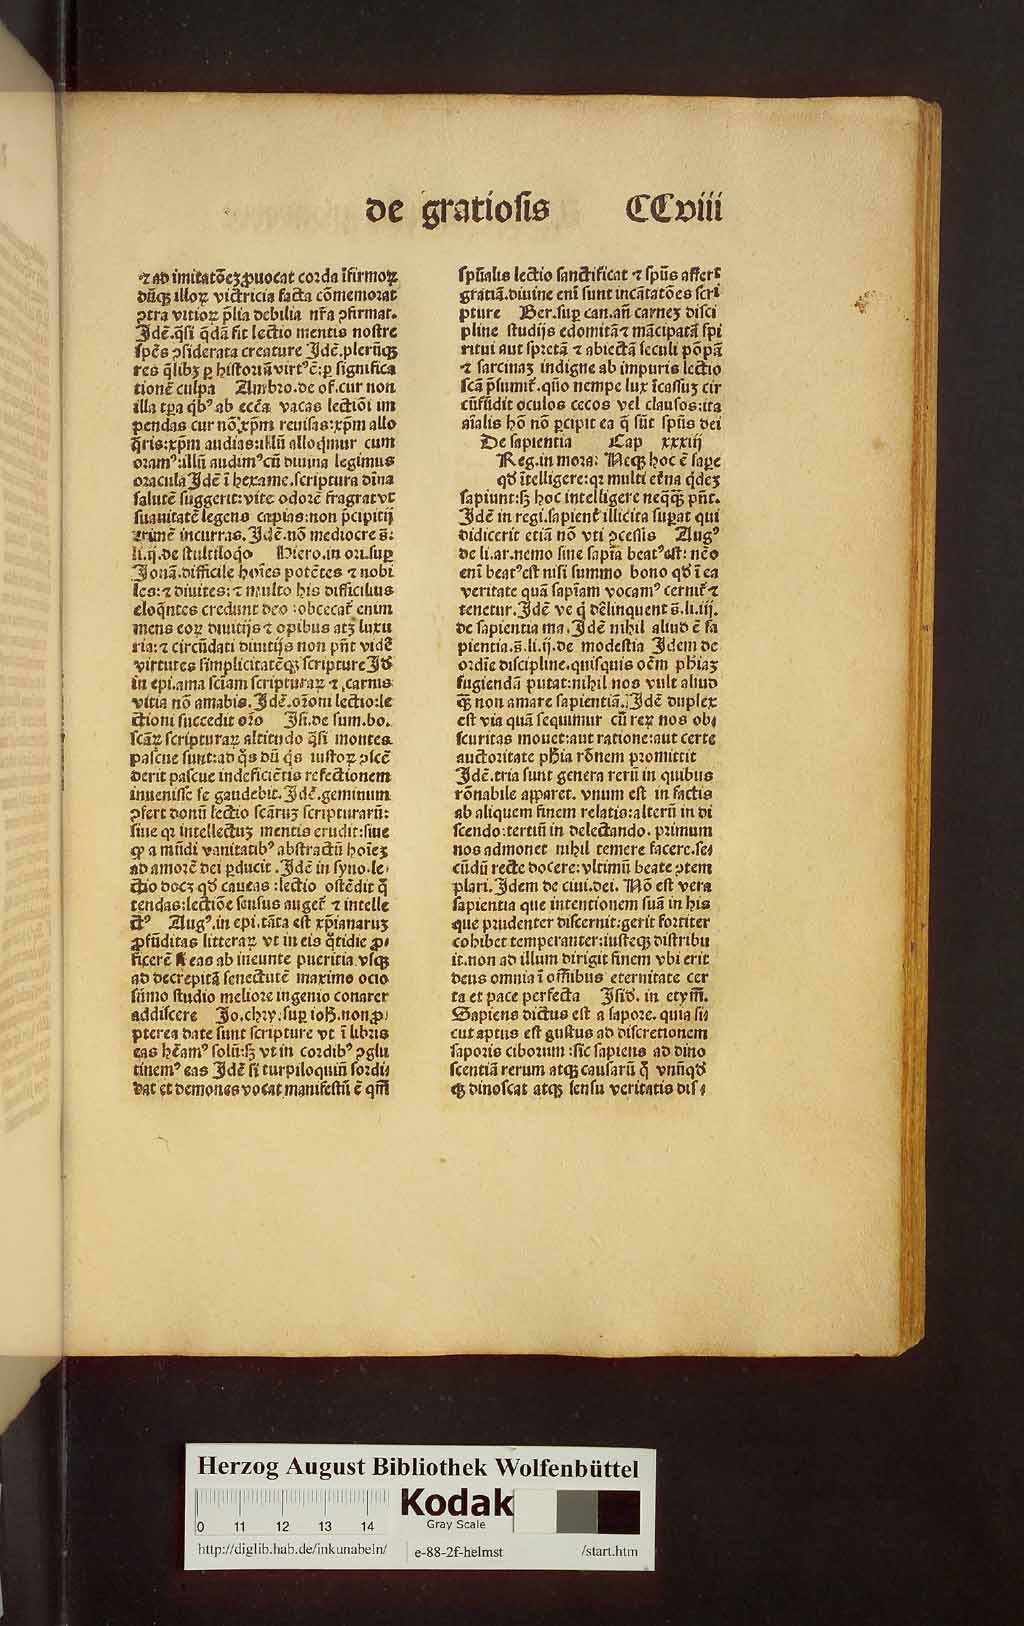 de gratiosis CCviii
⁊ ad imitatōeꝫ ꝓuocat corda īfirmoꝝ
dūqꝫ illoꝝ victricia facta cōmemorat
ꝯtra vitioꝝ p̄lia debilia nr̄a ꝯfirmat.
Idē.q̄si q̄dā fit lectio mentis nostre
spēs ꝯsiderata creature Idē.plerūqꝫ
res q̄libꝫ ꝑ historiā virtꝰ ē:ꝑ significa
tionē culpa Ambro.de of.cur non
illa tꝑa q̄bꝰ ab ecc̄a vacas lectiōi im
pendas cur nō xp̄m reuisas:xp̄m allo
q̄ris:xp̄m audias:illū alloq̄mur cum
oramꝰ:illū audimꝰ cū diuina legimus
oracula Idē ī hexame.scriptura diīna
salutē suggerit:vite odorē fragrat vt
suauitatē legens capias:non p̄cipitij
crimē incurras. Idē.nō mediocre s̄:
li.ij.de stultiloq̄o Hiero.in ori.suꝑ
Jonā.difficile hoīes potētes ⁊ nobi
les:⁊ diuites:⁊ multo his difficilius
eloq̄ntes credunt deo :obcecat᷑ enim
mens eoꝝ diuitijs ⁊ opibus atqꝫ luxu
ria:⁊ circūdati diuitijs non pn̄t vidē
virtutes simplicitatēqꝫ scripture Id̄
in epi.ama sciam scripturaꝝ ⁊ carnis
vitia nō amabis. Idē.or̄oni lectio:le
ctioni succedit or̄o Isi.de sum.bo.
scāꝝ scripturaꝝ altitudo q̄si montes
pascue sunt:ad q̄s dū q̄s iustoꝝ ꝯscē
derit pascue indeficiētis refectionem
inuenisse se gaudebit. Idē.geminum
ꝯfert donū lectio scāruꝫ scripturarū:
siue qꝛ intellectuꝫ mentis erudit:siue
ꝙ a mūdi vanitatibꝰ abstractū hoīeꝫ
ad amorē dei ꝑducit . Idē in syno.le
ctio docꝫ qd̄ caueas :lectio ostēdit q̄
tendas:lectiōe sensus auget᷑ ⁊ intelle
ctꝰ Augꝰ.in epi.tāta est xp̄ianaruꝫ
ꝓfūditas litteraꝝ vt in eis q̄tidie ꝓ
ficerē si eas ab ineunte pueritia vsqꝫ
ad decrepitā senectutē maximo ocio
sūmo studio meliore ingenio conarer
addiscere Jo.chry.suꝑ ioh̄.non ꝓ
pterea date sunt scripture vt ī libris
eas hēamꝰ solū:sꝫ vt in cordibꝰ ꝯglu
tinemꝰ eas Idē si turpiloquiū sordi
dat et demones vocat manifestū ē qm̄
spūalis lectio sanctificat ⁊ spūs affert
gratiā.diuine enī sunt incātatōes scri
pture Ber.suꝑ can.an̄ carneꝫ disci
pline studijs edomitā ⁊ mācipatā spi
ritui aut spretā ⁊ abiectā seculi pōpā
⁊ sarcinaꝫ indigne ab impuris lectio
scā p̄sumit᷑.qūo nempe lux īcassuꝫ cir
cūfūdit oculos cecos vel clausos:ita
aīalis hō nō ꝑcipit ea q̄ sūt spūs dei
De sapientia Cap xxxiij
Reg.in mora: Neqꝫ hoc ē sapꝰe
qd̄ ītelligere:qꝛ multi et̄na q̄deꝫ
sapiunt:sꝫ hoc intelligere neqq̄ꝫ pn̄t.
Idē in regi.sapient᷑ illicita suꝑat qui
didicerit etiā nō vti ꝯcessis Augꝰ
de li.ar.nemo sine sapīa beatꝰ est: nēo
enī beatꝰ est nisi summo bono qd̄ ī ea
veritate quā sapīam vocamꝰ cernit᷑ ⁊
tenetur. Idē ve q̄ dēlinquent s̄.li.iij.
de sapientia ma. Idē nihil aliud ē sa
pientia.s̄.li.ij.de modestia Idem de
ordīe discipline.quisquis oēm ph̄iaꝫ
fugiendā putat:nihil nos vult aliud
q̄ꝫ non amare sapientiā. Idē duplex
est via quā sequimur cū reꝝ nos ob
scuritas mouet:aut ratione:aut certe
auctoritate ph̄ia rōnem promittit
Idē.tria sunt genera rerū in quibus
rōnabile apparet. vnum est in factis
ab aliquem finem relatis:alterū in di
scendo:tertiū in delectando. primum
nos admonet nihil temere facere.se
cūdū recte docere:vltimū beate ꝯtem
plari. Idem de ciui.dei. Nō est vera
sapientia que intentionem suā in his
que prudenter discernit:gerit fortiter
cohibet temperanter:iusteqꝫ distribu
it.non ad illum dirigit finem vbi erit
deus omnia ī oīnibus eternitate cer
ta et pace perfecta Isid̄. in etym̄.
Sapiens dictus est a sapore. quia si
cut aptus est gustus ad discretionem
saporis ciborum :sic sapiens ad dino
scentiā rerum atqꝫ causarū q̄ vnūqd̄
qꝫ dinoscat atqꝫ sensu veritatis dis
Herzog August Bibliothek Wolfenbüttel
0 11 12 13 14
Kodak
Gray Scale
http://diglib.hab.de/inkunabeln/ e-88-2f-helmst /start.htm